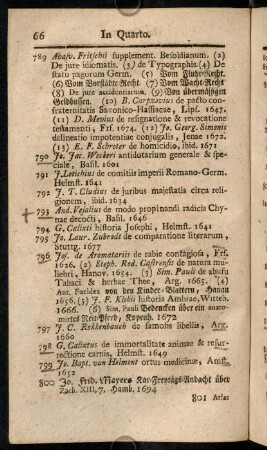 66 In Quarto.
789 Ahasv. Fritschii supplement. Besoldianum. (2)
De jure idiomatis. (3) de Typographis. (4) De
statu pagorum Germ. (5) Vom Fluhr-Recht.
(6) Vom Vorstädte-Recht. (7) Vom Wacht-Recht
(8) De jure accidentarum. (9) Von übermäßigen
Geldbußen. (10) B. Carpzovius de pacto con-
fraternitatis Saxonico-Hassiacae, Lips. 1647.
(11) D. Mevius de resignatione & revocatione
testamenti, Frf. 1674. (12) Jo. Georg. Simonis
delineatio impotentiae conjugalis, Jene 1672.
(13) E. F. Schroter de homicidio, ibid. 1671
790 Jo. Jac. Weckeri antidotarium generale & spe-
ciale, Basil. 1601
791 J. Lotichius de comitiis imperii Romano-Germ.
Helmst. 1641
792 J. T. Cludius de juribus majestatis circa reli-
gionem, ibid. 1634
793 And. Vesalius de modo propinandi radicis Chy-
nae decocti, Basil. 1646
794 G. Calixti historia Josephi, Helmst. 1641
795 Jo. Laur. Zubrodt de comparatione literarum,
Stuttg. 1677
796 Jos. de Aromatariis de rabie contagiosa, Frf.
1626. (2) Steph. Rod. Castrensis de natura mu-
liebri, Hanov. 1654. (3) Sim. Pauli de abusu
Tabaci & herbae Thee, Arg. 1665. (4)
Ant. Faeldes von den Kinder-Blattern, Hanau
1656. (5) J. F. Klebii historia Ambrae, Witteb.
1666. (6) Sim. Pauli Bedencken über ein ana-
tomirtes Reit-Pferd, Kopenh. 1672
797 J. C. Rekkenbauch de famosis libellis, Arg.
1660
798 G. Calixtus de immortalitate animae & resur-
rectione carnis, Helmst. 1649
799 Jo. Bapt. von Helmont ortus medicinae, Amst.
1652
800 Jo. Frid. Mayers Kar-Freytags-Andacht über
Zach. XIII, 7, Hamb. 1694
801 Atlas